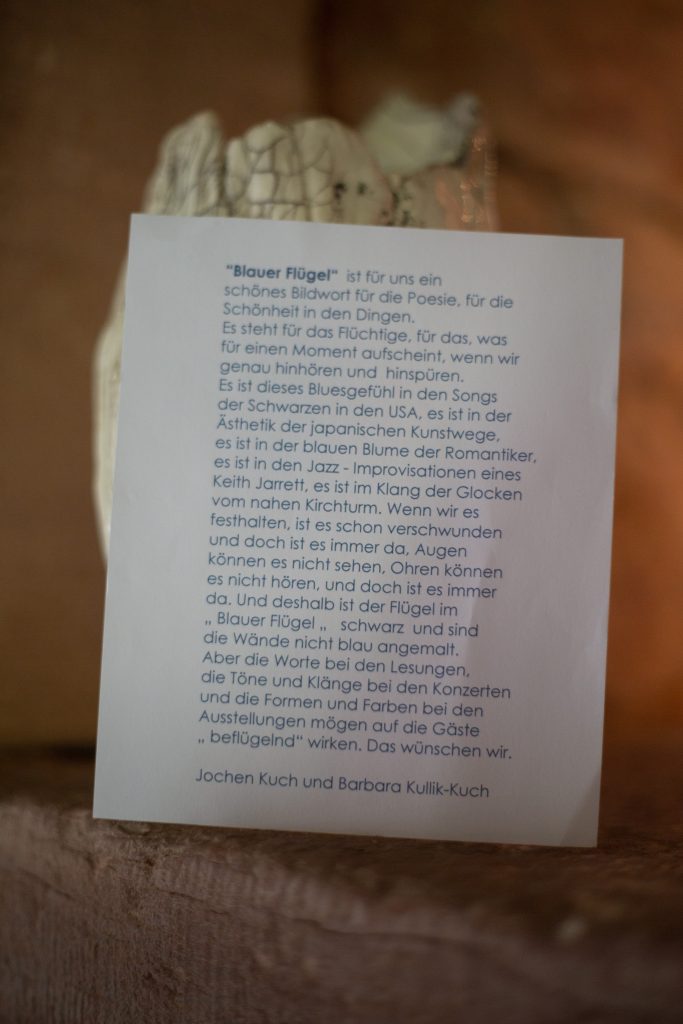 “Blauer Flügel“ ist für uns ein
schönes Bildwort für die Poesie, für die
Schönheit in den Dingen.
Es steht für das Flüchtige, für das, was
für einen Moment aufscheint, wenn wir
genau hinhören und hinspüren.
Es ist dieses Bluesgefühl in den Songs
der Schwarzen in den USA, es ist in der
Ästhetik der japanischen Kunstwege,
es ist in der blauen Blume der Romantiker,
es ist in den Jazz - Improvisationen eines
Keith Jarrett, es ist im Klang der Glocken
vom nahen Kirchturm. Wenn wir es
festhalten, ist es schon verschwunden
und doch ist es immer da, Augen
können es nicht sehen, Ohren können
es nicht hören, und doch ist es immer
da. Und deshalb ist der Flügel im
„ Blauer Flügel „ schwarz und sind
die Wände nicht blau angemalt.
Aber die Worte bei den Lesungen,
die Töne und Klänge bei den Konzerten
und die Formen und Farben bei den
Ausstellungen mögen auf die Gäste
„ beflügelnd“ wirken. Das wünschen wir.
Jochen Kuch und Barbara Kullik-Kuch